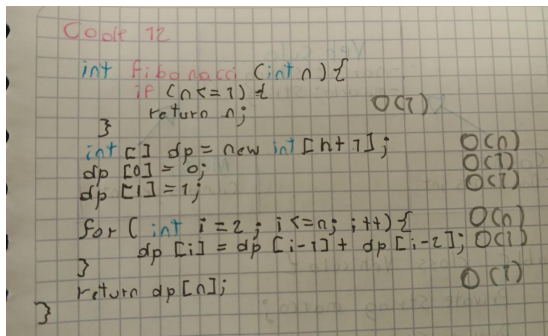 Code 12
int fibonacci (int n) {
if (n <= 1) {
return n; O(1)
}
int [] dp = new int [n+1]; O(n)
dp [0] = 0; O(1)
dp [1] = 1; O(1)
for ( int i = 2 ; i <= n; i++) { O(n)
dp [i] = dp [i-1] + dp [i-2]; O(1)
}
return dp [n]; O(1)
}